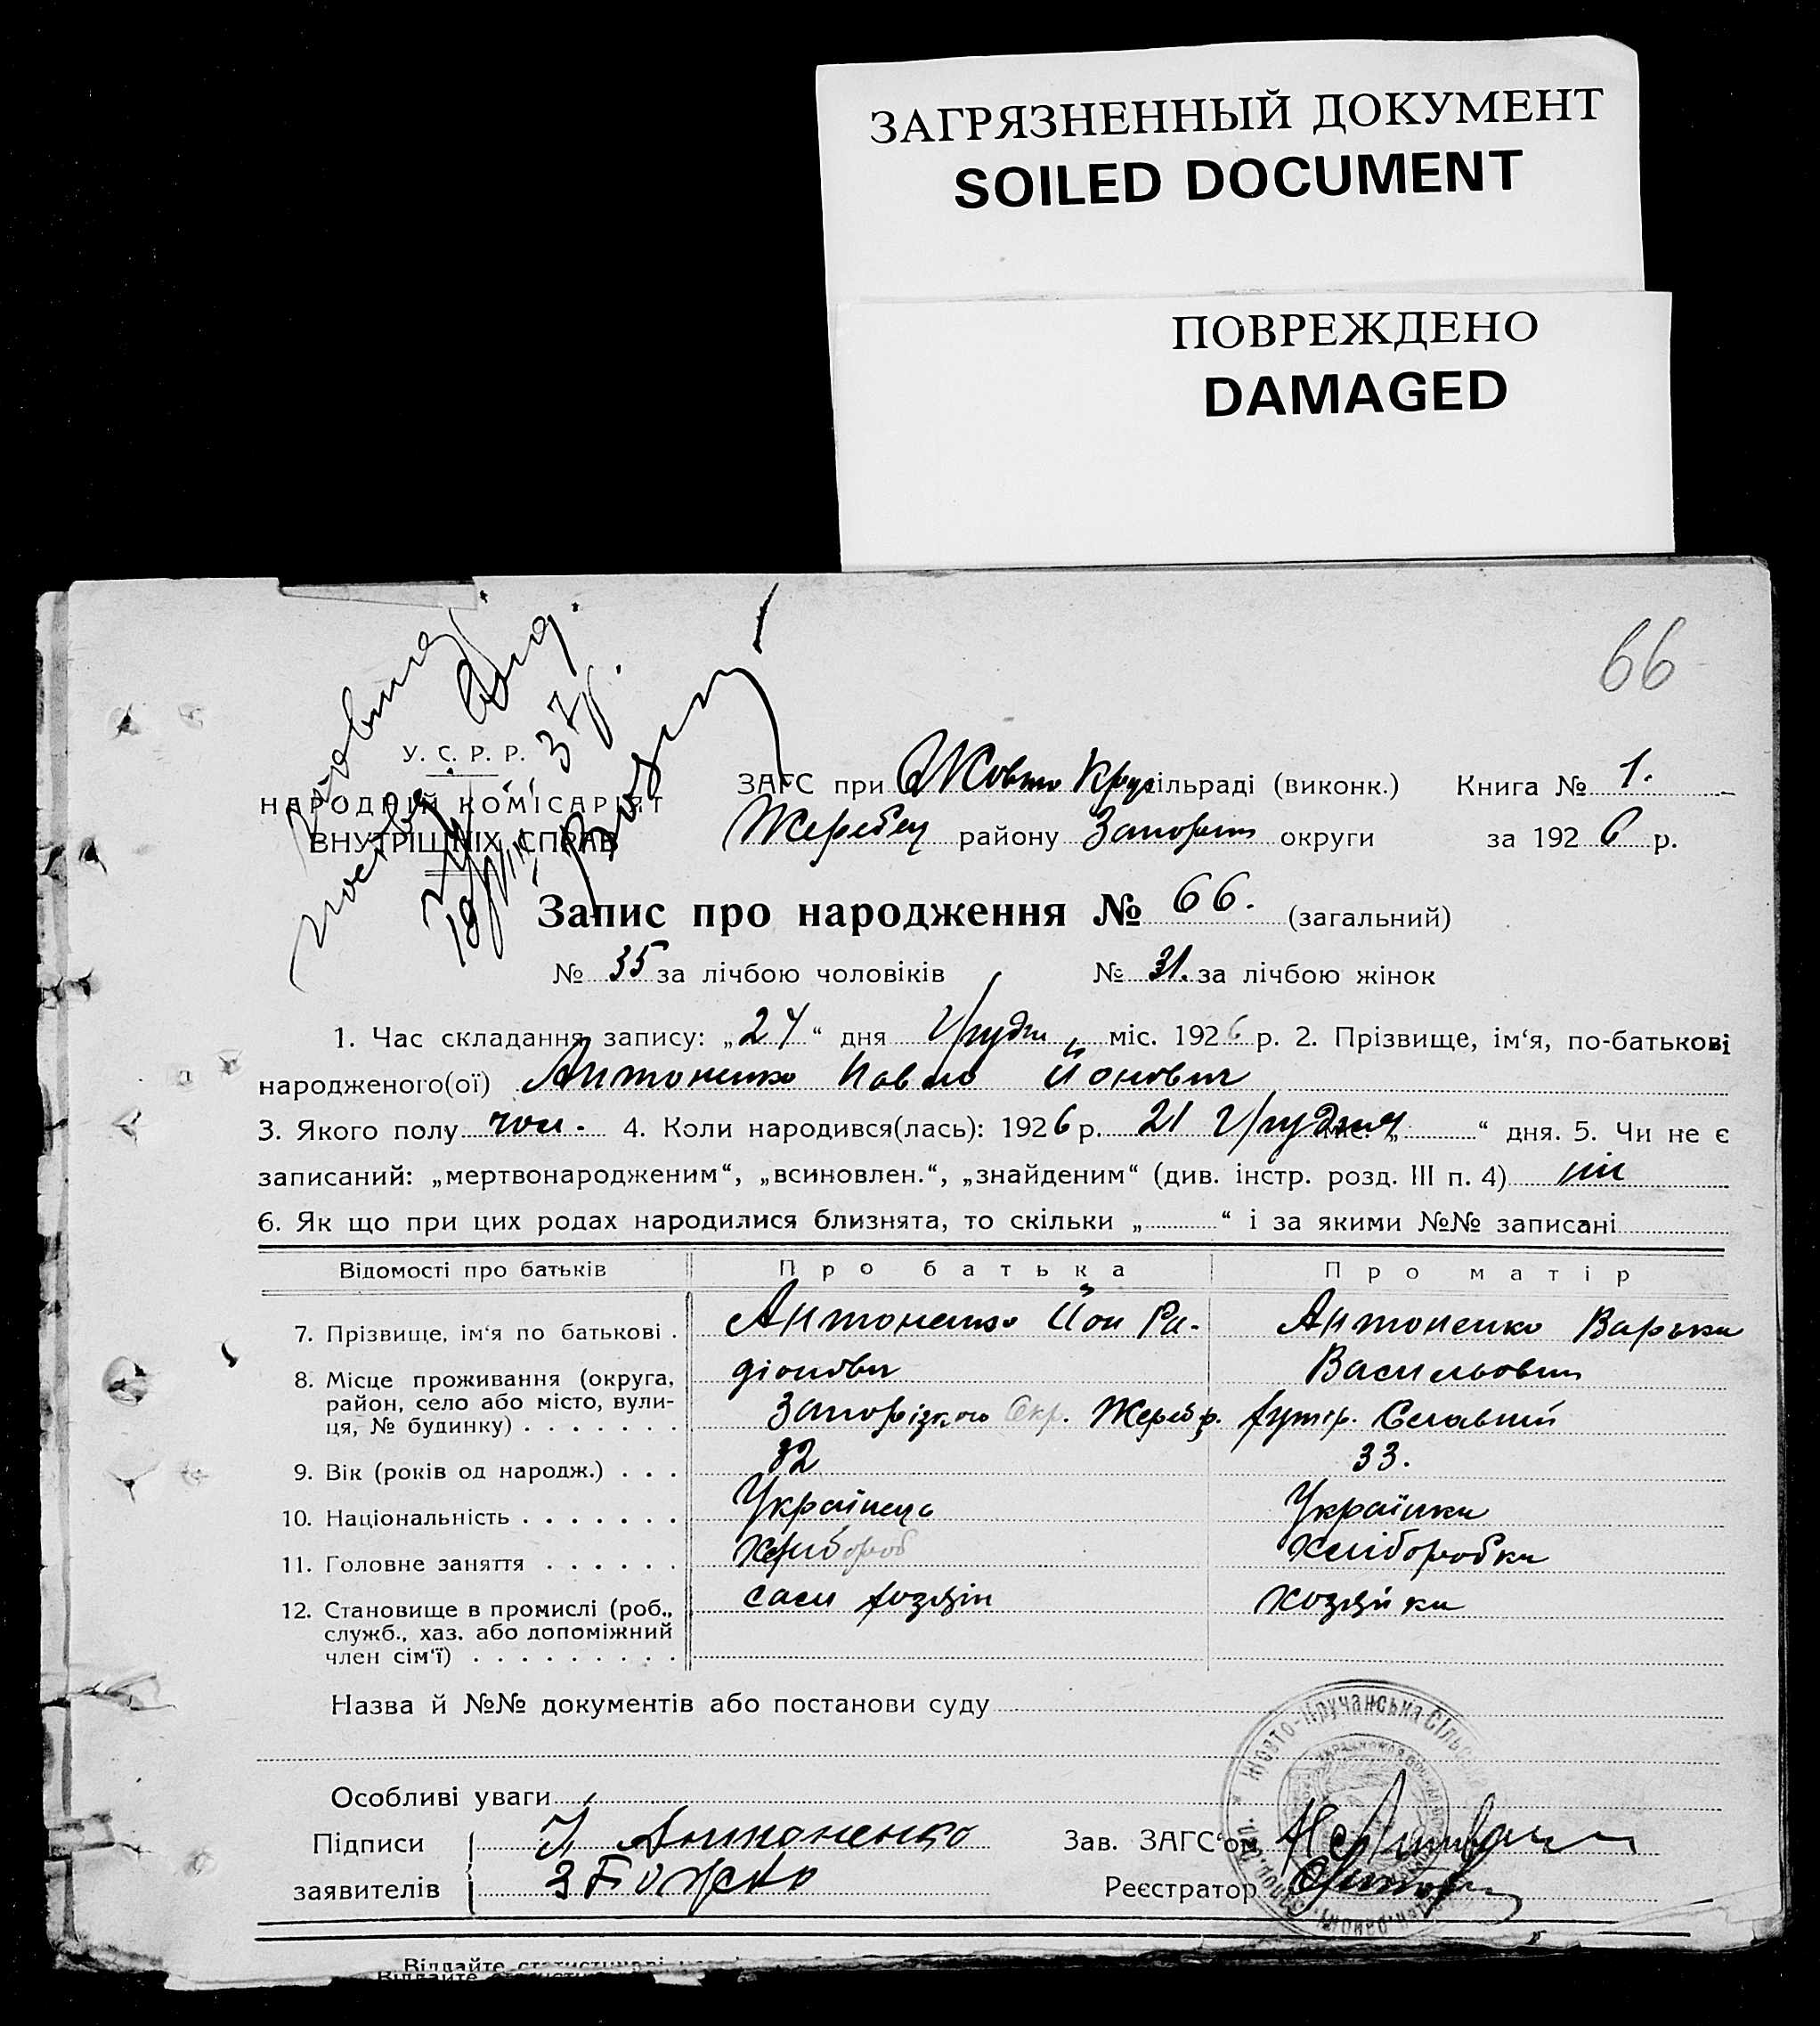 ЗАГРЯЗНЕННЫЙ ДОКУМЕНТ
SOILED DOCUMENT
ПОВРЕЖДЕНО
DAMAGED
66
У. С. Р. Р.
НАРОДНІЙ КОМІСАРІЯТ
ВНУТРІШНІХ СПРАВ
ЗАГС при Жовто Круч сільраді (виконк.) Книга № 1.
Жеребец району Запоріж округи за 1926 р.
Запис про народження № 66. (загальний)
№ 35 за лічбою чоловіків № 31. за лічбою жінок
1. Час складання запису: „24“ дня Грудн міс. 1926 р. 2. Прізвище, ім‘я, по-батькові
народженого(ої) Антоненко Павло Йонович
3. Якого полу чол. 4. Коли народився(лась): 1926 р. 21 Грудня „ “ дня. 5. Чи не є
записаний: „мертвонародженим“, „всиновлен.“, „знайденим“ (див. інстр. розд. III п. 4) ні
6. Як що при цих родах народилися близнята, то скільки „ “ і за якими №№ записані
Відомості про батьків Про батька Про матір
7. Прізвище, ім‘я по батькові . Антоненко Йон Ра- Антоненко Варька
8. Місце проживання (округа, діонович Васильовна
район, село або місто, вули- Запорізького Окр. Жереб р. хутір.
ця, № будинку) . . . . . . .
9. Вік (років од народж.) . . . 32 33.
10. Національність . . . . . . . Українець Українка
11. Головне заняття . . . . . . Хлібороб Хліборобка
12. Становище в промислі (роб., сам хозяїн хозяйка
служб., хаз. або допоміжний
член сім‘ї) . . . . . . . . .
Назва й №№ документів або постанови суду
Жовто-Кручанська Сільс
Особливі уваги
Підписи Й Антоненко Зав. ЗАГС‘ом
заявителів Реєстратор
Віддайте статистичні
Віддайте